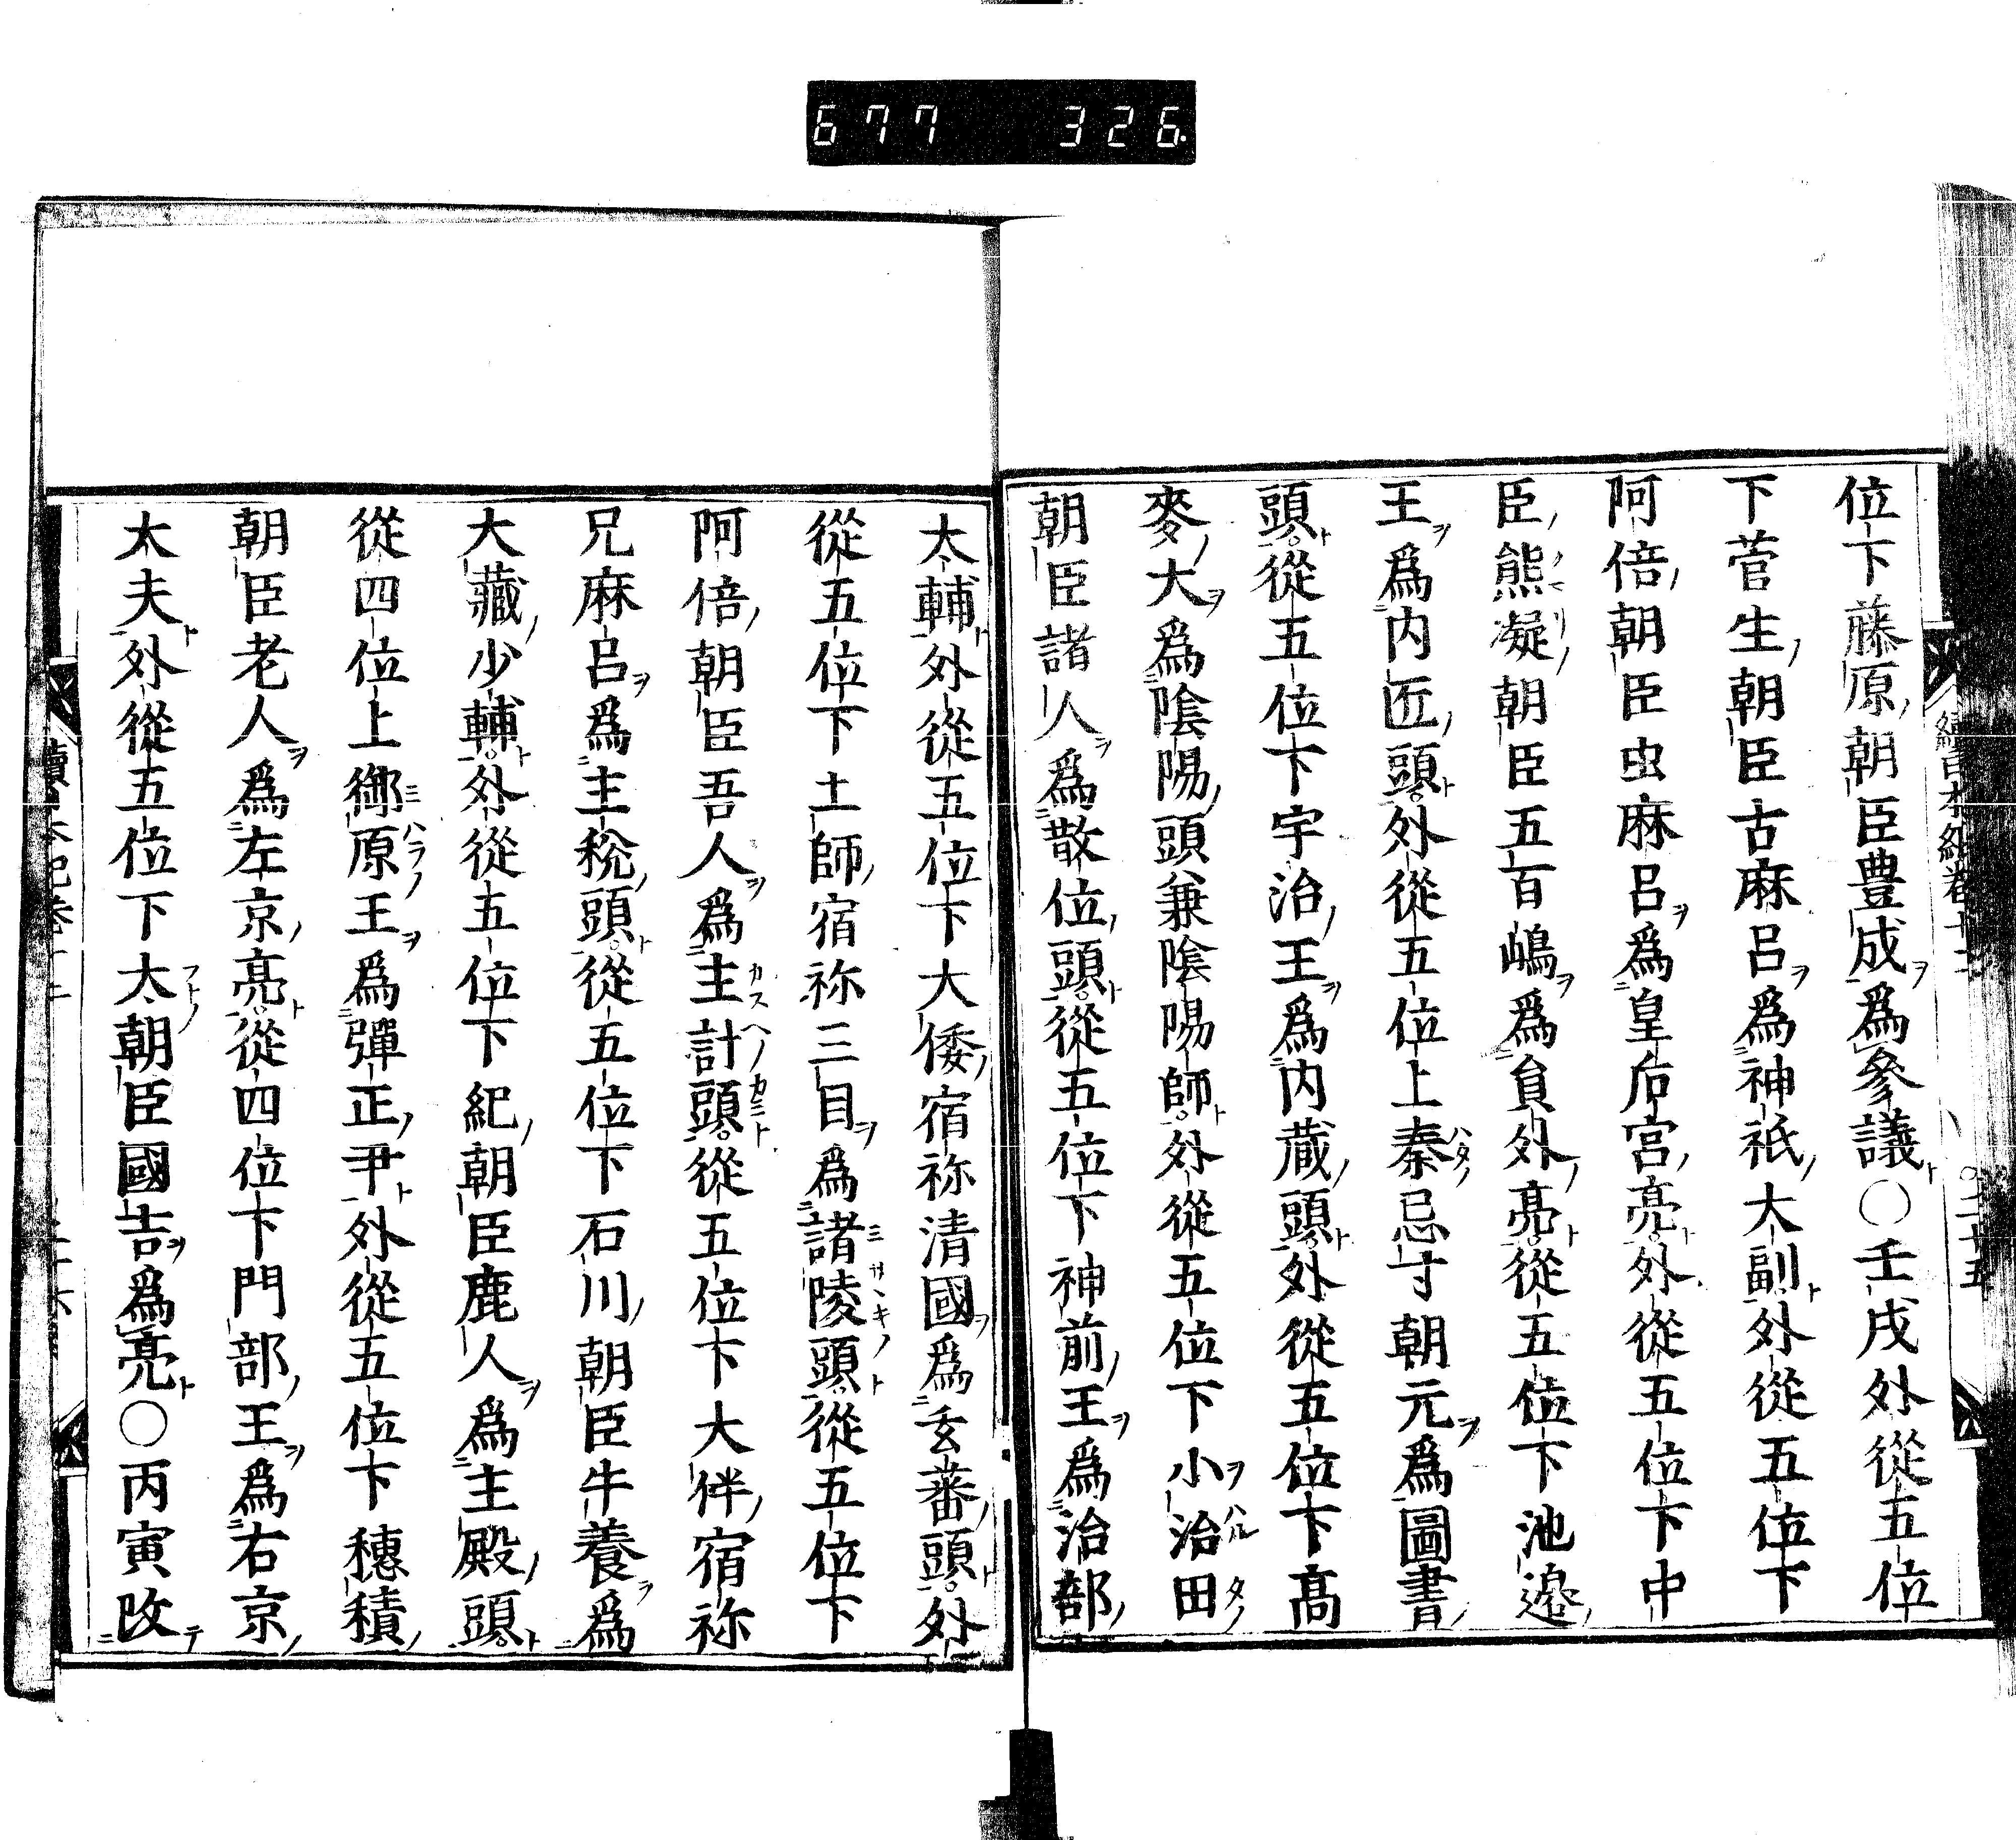 677 326.
位下藤原朝臣豊成爲參議〇壬戌外從五位
下菅生朝臣古麻呂爲神祇大副外從五位下
阿倍朝臣虫麻呂爲皇后宮亮外從五位下中
臣熊凝朝臣五百嶋爲員外亮從五位下池邊
王爲内匠頭外從五位上秦忌寸朝元爲圖書
頭從五位下宇治王爲内蔵頭外從五位下高
麥大爲陰陽頭兼陰陽師外從五位下小治田
朝臣諸人爲散位頭從五位下神前王爲治部
太輔外從五位下大倭宿祢清國爲玄蕃頭外
從五位下土師宿祢三目爲諸陵頭從五位下
阿倍朝臣吾人爲主計頭從五位下大伴宿祢
兄麻呂爲主税頭從五位下石川朝臣牛養爲
大藏少輔外從五位下紀朝臣鹿人爲主殿頭
從四位上御原王爲彈正尹外從五位下穗積
朝臣老人爲左京亮從四位下門部王爲右京
太夫外從五位下太朝臣國吉爲亮〇丙寅改